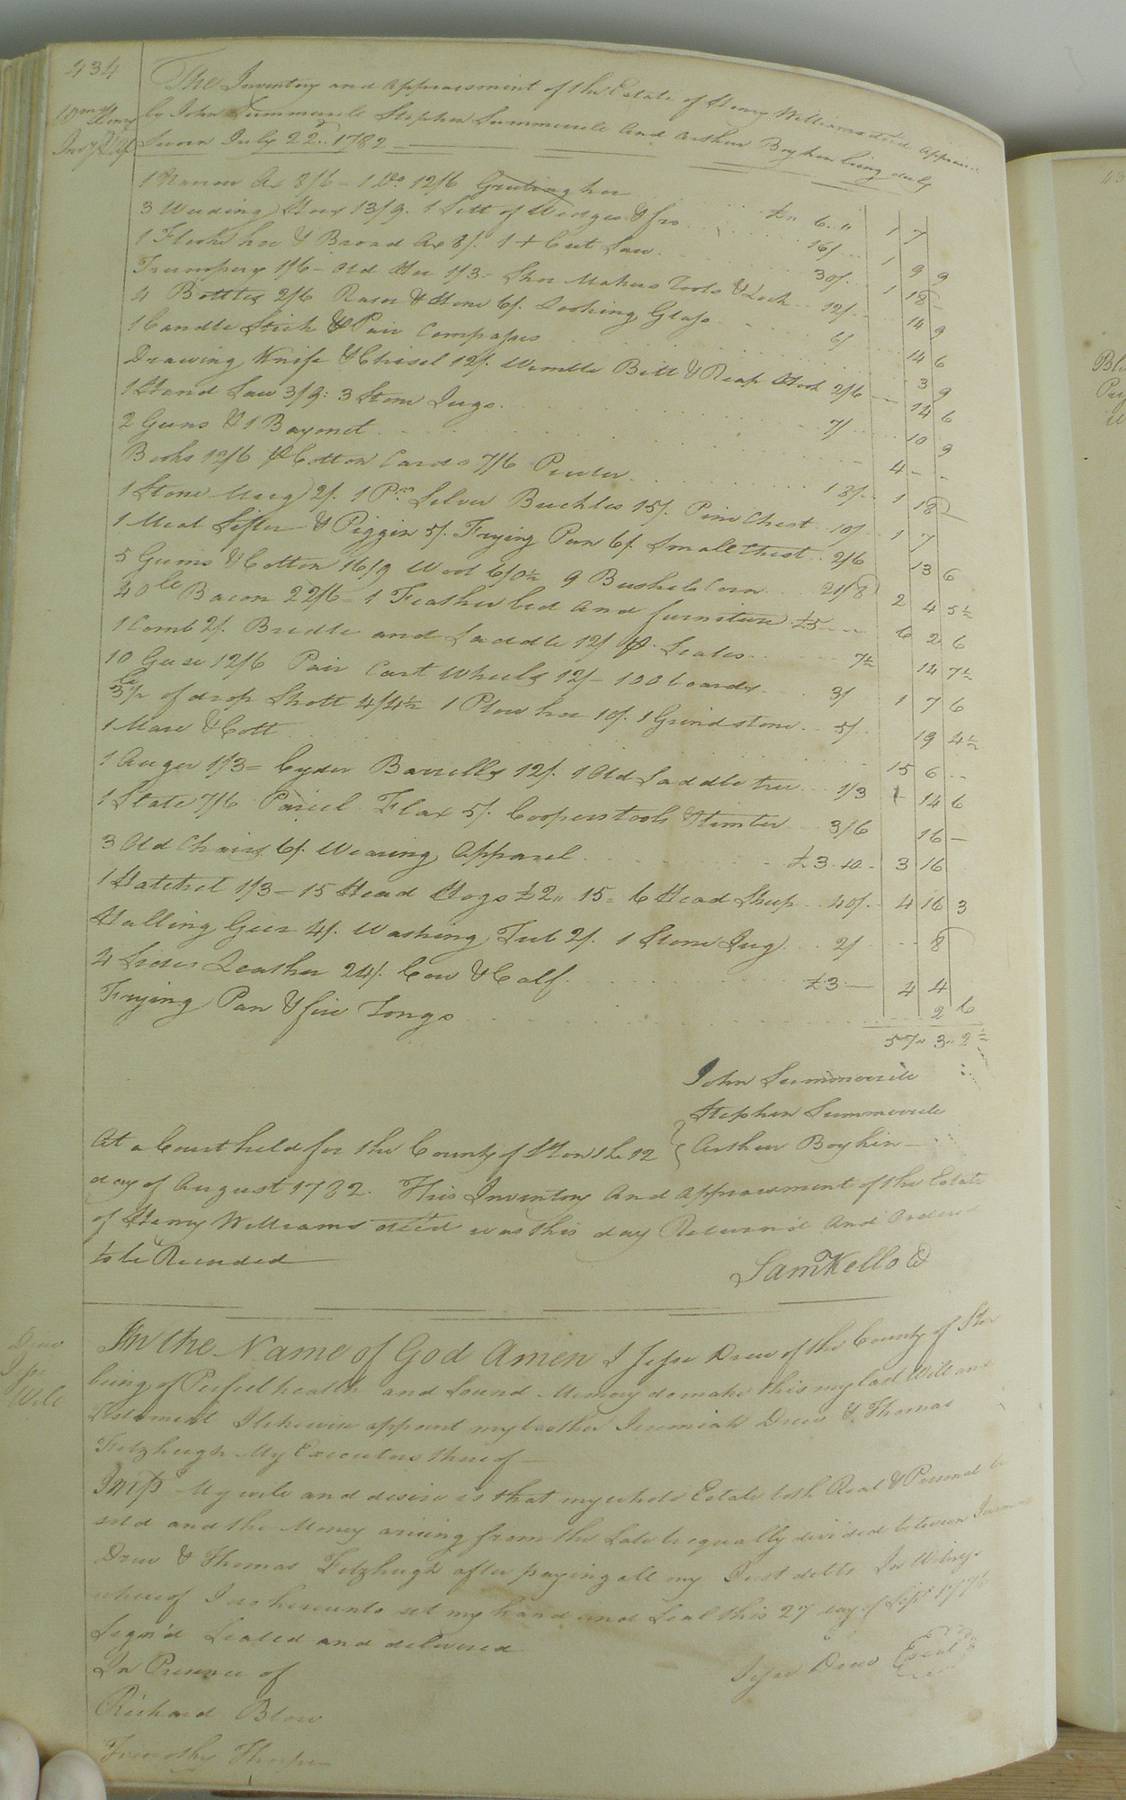 434
Wms Henry
Invy &
The Inventory and Appraisment of the Estate of Henry Williams decd Apprais'd
by John Summerele Stephen Summerele And Arthur Boykin being duly
Sworn July 22d.. 1782
1 Narrow Ax 8/6 – 1 Do 12/6 Grubing hoe £ " 6. " 1 7
3 Weeding Hoes 13/9. 1 Sett of Wedges & fro 16/ 1 9 9
1 Fluke hoe & Broad Ax 8/. 1 + Cut Saw 30/. 1 18 –
Trumpery 1/6 – Old 1/3 – Shoe Makers Tools & Lock 12/. 14 9
4 Bottles 2/6 Razor & Hone 6/. Looking Glass 6/ 14 6
1 Candle Stick & Pair Compasses 3 9
Drawing Knife & Chisel 12/. Wimble Bitt & Reap Hook 2/6 14 6
1 Hand Saw 3/9: 3 Stone Jugs 7/ 10 9
2 Guns & 1 Bayonet 4 – –
Books 12/6 Cotton Cards 7/6 Pewter 18/. 1 18 –
1 Stone Mug 2/. 1 Pr. Silver Buckles 15/. Pine Chest 10/. 1 7
1 Meal Sifter & Piggin 5/. Frying Pan 6/. Small Chest 2/6 13 6
5 Gums & Cotton 16/9 Wool 6/0½ 9 Bushels Corn 21/8 2 4 5½
40 lb Bacon 22/6 – 1 Feather bed And furniture £5 – – 6 2 6
1 Comb 2/. Bridle and Saddle 12/. Scales 7½ 14 7½
10 Geese 12/6 Pair Cart Wheels 12/– 100 boards 3/ 1 7 6
3½ lb of drop Shott 4/4½ 1 Plow hoe 10/. 1 Grindstone 5/. 19 4½
1 Mare & Colt 15 6 –
1 Auger 1/3 = Cyder Barrells 12/. 1 Old Saddle tree 1/3 14 6
1 Slate 7/6 Parcel Flax 5/. Coopers tools & timber 3/6 16 –
3 Old Chairs 6/. Wearing Apparel £3 . 10 – 3 16
1 Hatchel 1/3 – 15 Head Hogs £2 " 15 = 6 Head Sheep 40/. 4 16 3
Halling Geer 4/. Washing Tub 2/. 1 Stone Jug 2/ 8
4 Sides Leather 24/. Cow & Calf £3 – 4 4
Frying Pan & fire Tongs 2 6
57 " 3 " 2½
John Summerele
Stephen Summerele
Arthur Boykin
At a Court held for the County of Ston the 12
day of August 1782. This Inventory And Appraisment of the Estate
of Henry Williams decd was this day Return'd And Ordered
to be Recorded
Saml Kello C
Drew
Jesse
Will
In the Name of God Amen I Jesse Drew of the County of Ston
being of Perfect health and Sound Memory do make this my last Will and
Testament I likewise appoint my brother Jeremiah Drew & Thomas
Fitzhugh My Executors thereof
Imps My will and desire is that my whole Estate both Real & Personal be
sold and the Money arising from the Sale be equally divided between
Drew & Thomas Fitzhugh after paying all my Just debts In Witness
whereof I do hereunto set my hand and Seal this 27 day of Sept 1776
Sign'd Sealed and delivered
In Presence of
Jesse Drew Seal
Richard Blow
Timothy Thorpe